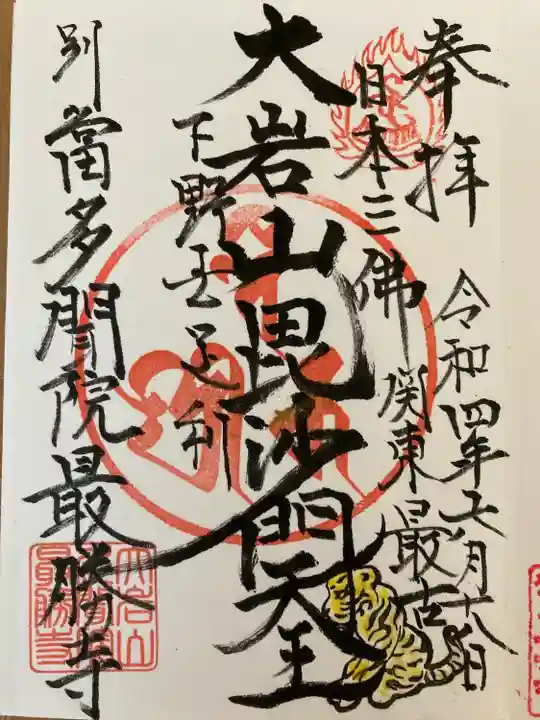 奉拝
令和四年五月十八日
日本三佛
関東最古
大岩山毘沙門天王
下野国足利
別當多聞院最勝寺
大岩山
最勝寺